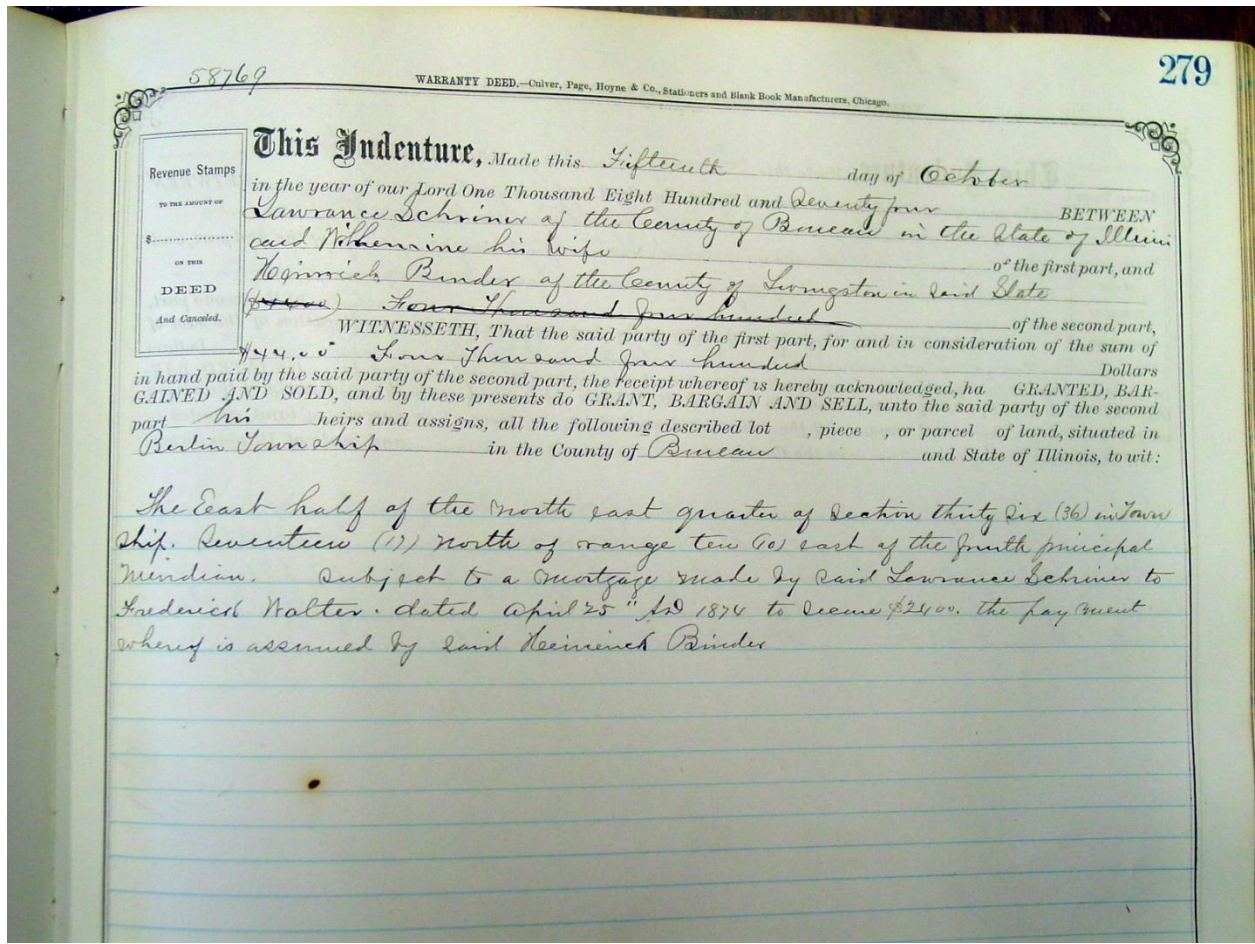 279
58769
WARRANTY DEED.—Culver, Page, Hoyne & Co., Stationers and Blank Book Manufacturers, Chicago.
Revenue Stamps
TO THE AMOUNT OF
$
ON THIS
DEED
And Canceled.
This Indenture, Made this Fifteenth day of October
in the year of our Lord One Thousand Eight Hundred and Seventy four BETWEEN
Lawrance Schriner of the County of Bureau in the State of Illini
and Wilhemine his wife of the first part, and
Heinrich Binder of the County of Livingston in said State
($4400) Four Thousand four hundred of the second part,
WITNESSETH, That the said party of the first part, for and in consideration of the sum of
$44.00 Four Thousand four hundred Dollars
in hand paid by the said party of the second part, the receipt whereof is hereby acknowledged, ha GRANTED, BAR-
GAINED AND SOLD, and by these presents do GRANT, BARGAIN AND SELL, unto the said party of the second
part his heirs and assigns, all the following described lot , piece , or parcel of land, situated in
Berlin Township in the County of Bureau and State of Illinois, to wit:
The East half of the North east quarter of Section thirty six (36) in Town
ship. Seventeen (17) North of range ten (10) east of the fourth principal
Meridian. Subject to a mortgage made by said Lawrance Schriner to
Frederick Walter. dated April 25" AD 1874 to secure $2400. the pay ment
whereof is assumed by said Heinrich Binder